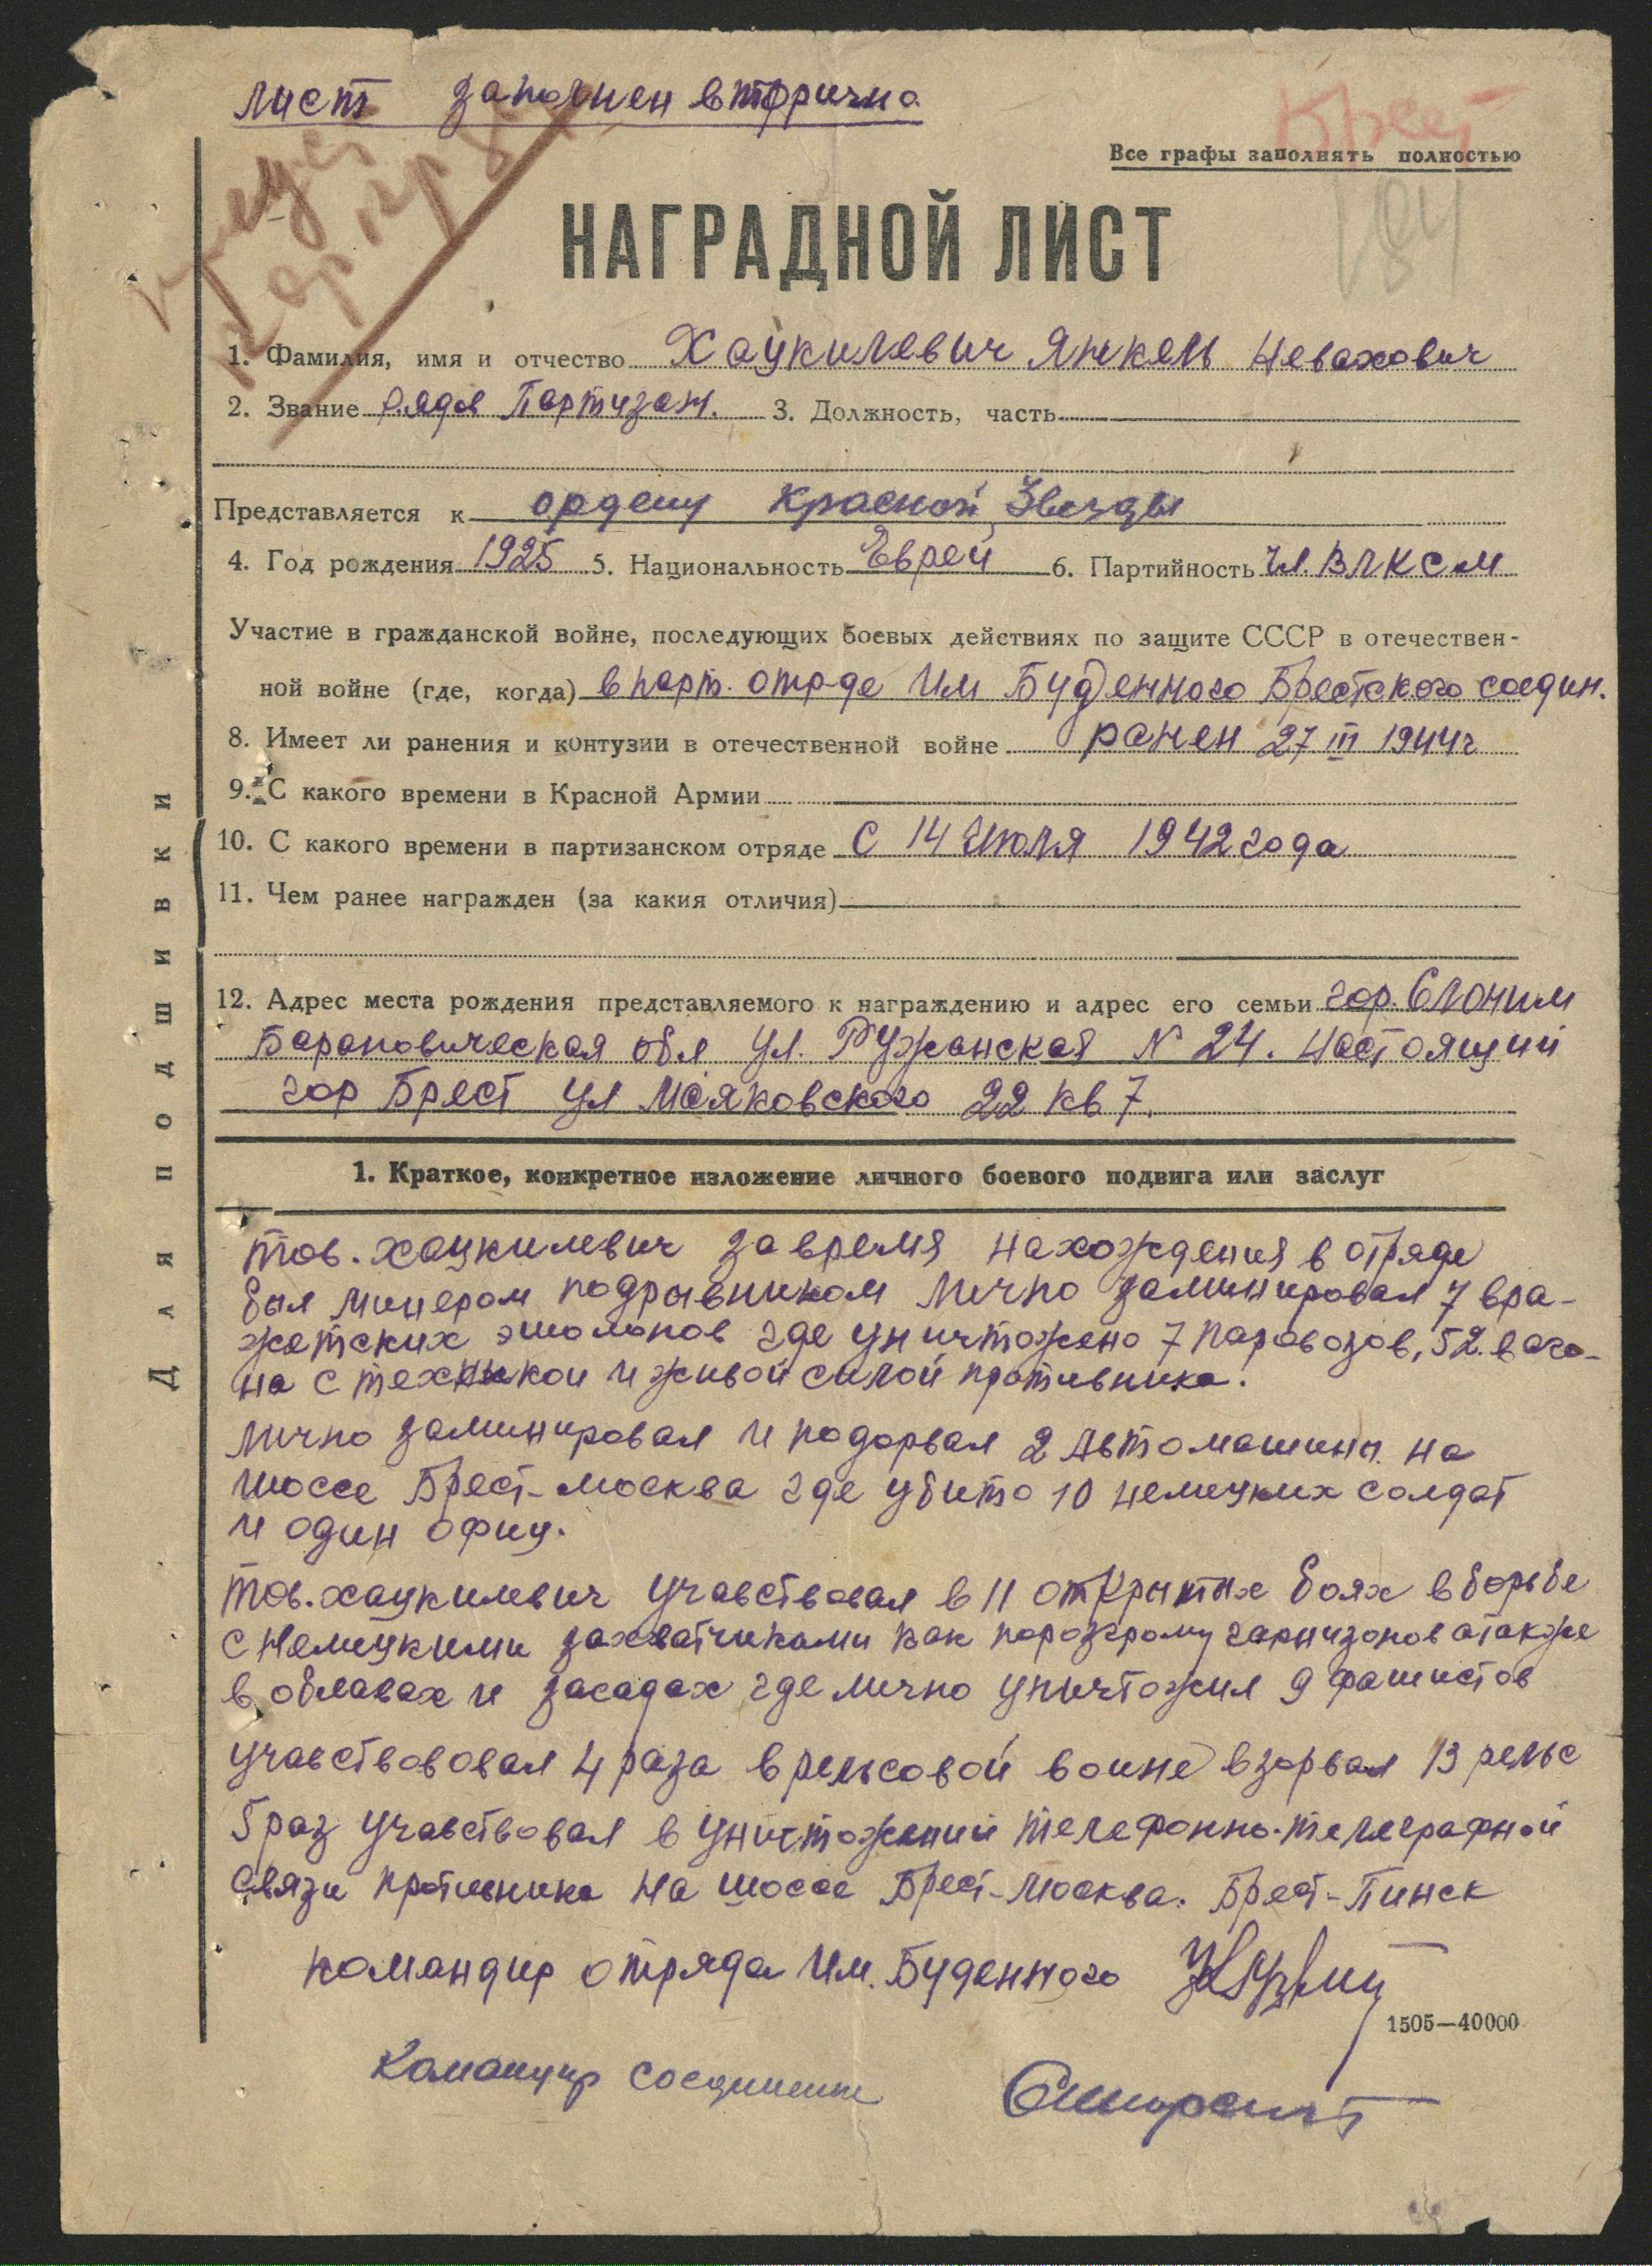 лист заполнен вторично
Крест
Все графы заполнять полностью
84
НАГРАДНОЙ ЛИСТ
1. Фамилия, имя и отчество Хацкилевич Янкель Невахович
2. Звание рядв Партизан. 3. Должность, часть
Представляется к ордену Красной Звезды
4. Год рождения 1925 5. Национальность Еврей 6. Партийность чл. ВЛКСМ
Участие в гражданской войне, последующих боевых действиях по защите СССР в отечествен-
ной войне (где, когда) в парт. отр-де Им Буденного Брестского соедин.
8. Имеет ли ранения и контузии в отечественной войне ранен 27 III 1944г
9. С какого времени в Красной Армии
10. С какого времени в партизанском отряде С 14 Июля 1942 года
11. Чем ранее награжден (за какия отличия)
12. Адрес места рождения представляемого к награждению и адрес его семьи гор. Слоним
Барановическая обл ул. Ружанская № 24. Настоящий
гор Брест ул Маяковского 22 кв 7.
Для подшивки
1. Краткое, конкретное изложение личного боевого подвига или заслуг
тов. Хацкилевич за время нахождения в отряде
был минером подрывником лично заминировал 7 вра-
жетских эшолонов где уничтожено 7 паровозов, 52. ваго-
на с техникой и живой силой противника.
лично заминировал и подорвал 2 Автомашины на
шоссе Брест-москва где убито 10 немецких солдат
и один офиц.
тов. хацкилевич учавствовал в 11 открытых боях в борьбе
с немецкими захватчиками как поразгрому гарнизонов атакже
в облавах и засадах где лично уничтожил 9 фашистов
учавствововал 4 раза в рельсовой воине взорвал 13 рельс
5 раз учавствовал в уничтожений телефонно-телеграфной
связи противника на шоссе Брест-Москва. Брест-Пинск
командир отряда Им. Буденного
1505—40000
Командир соединения